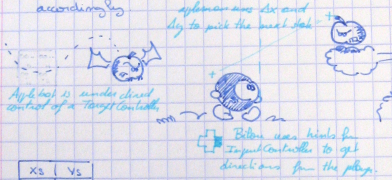 accordingly
uses Δx and
Δy to pick the next
Applebat is under direct
control of a TargetController
Bilou uses hints from
InputController to get
directions from the player.